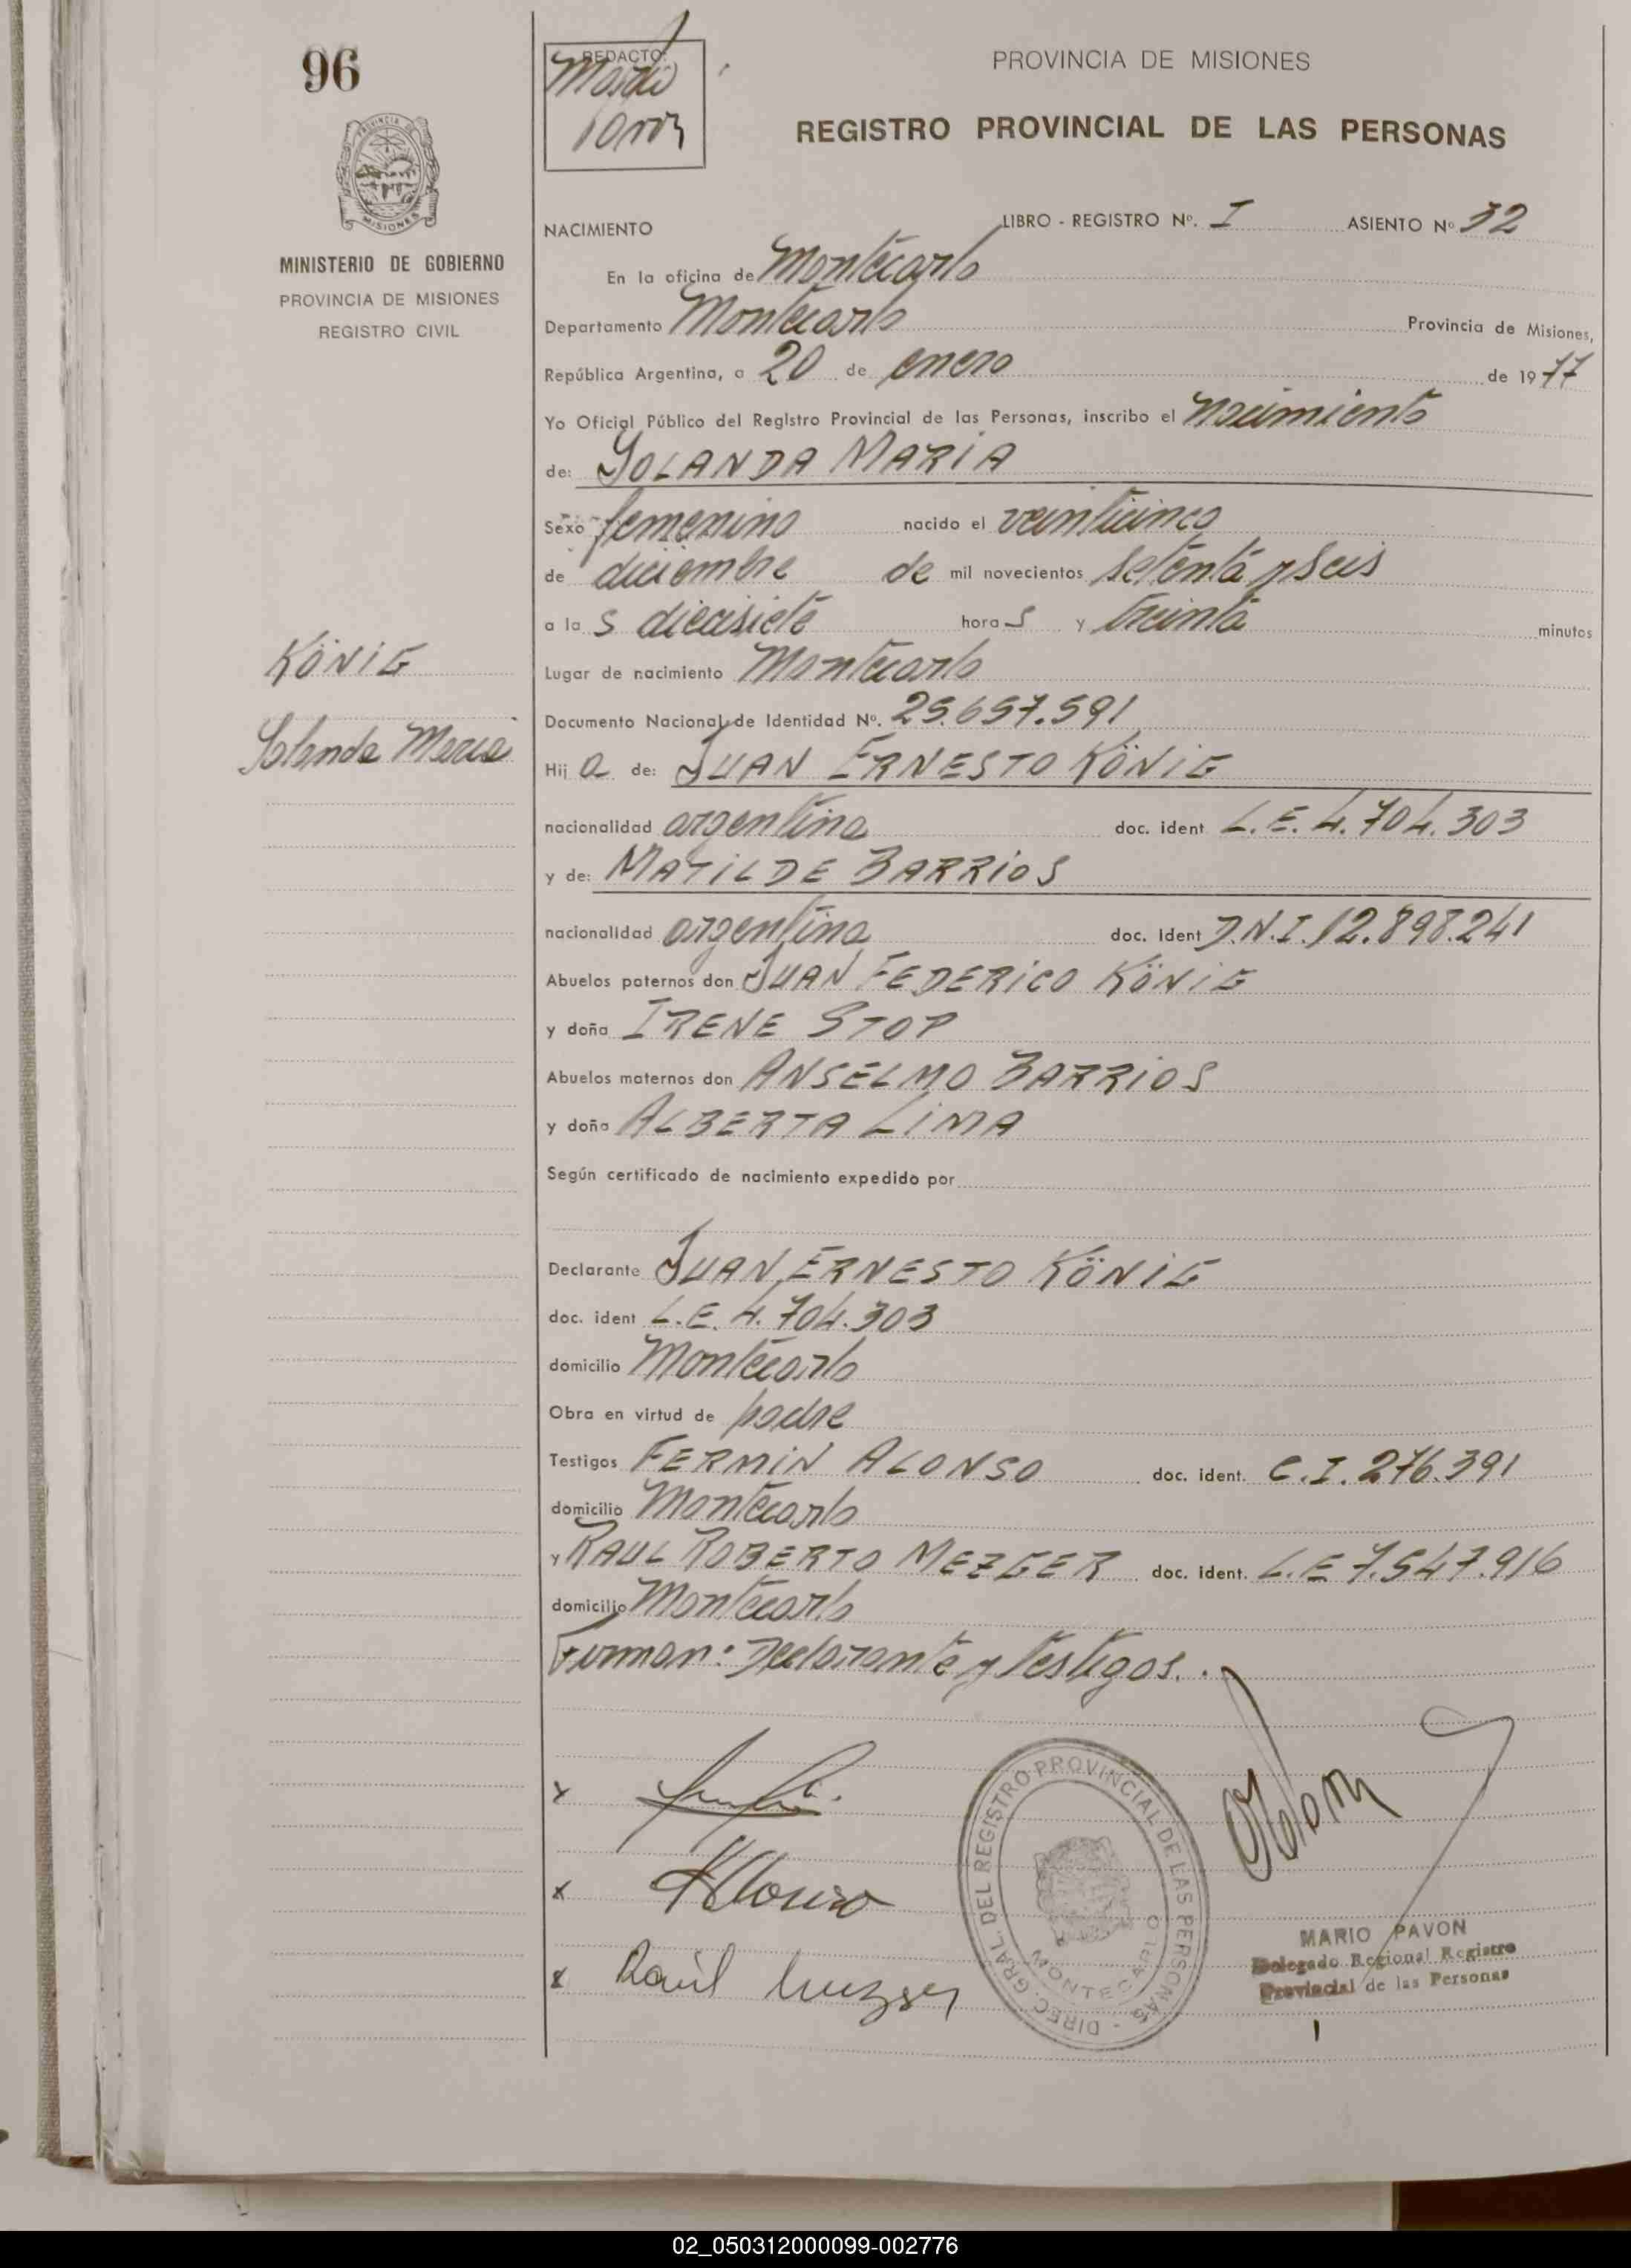 96
REDACTO:
PROVINCIA DE MISIONES
REGISTRO PROVINCIAL DE LAS PERSONAS
PROVINCIA DE MISIONES
MINISTERIO DE GOBIERNO
PROVINCIA DE MISIONES
REGISTRO CIVIL
NACIMIENTO LIBRO - REGISTRO Nº. I ASIENTO Nº 32
En la oficina de Montecarlo
Departamento Montecarlo Provincia de Misiones,
República Argentina, a 20 de enero de 1977
Yo Oficial Público del Registro Provincial de las Personas, inscribo el nacimiento
de: YOLANDA MARIA
Sexo femenino nacido el veinticinco
de diciembre de mil novecientos setenta y seis
a la s diecisiete hora s y treinta minutos
KÖNIG
Yolanda Maria
Lugar de nacimiento Montecarlo
Documento Nacional de Identidad Nº. 25.657.591
Hij a de: JUAN ERNESTO KÖNIG
nacionalidad argentina doc. ident L.E. 4.704.303
y de: MATILDE BARRIOS
nacionalidad argentina doc. Ident D.N.I. 12.898.241
Abuelos paternos don JUAN FEDERICO KÖNIG
y doña IRENE STOP
Abuelos maternos don ANSELMO BARRIOS
y doña ALBERTA LIMA
Según certificado de nacimiento expedido por
Declarante JUAN ERNESTO KÖNIG
doc. ident L.E. 4.704.303
domicilio Montecarlo
Obra en virtud de padre
Testigos FERMIN ALONSO doc. ident. C.I. 276.391
domicilio Montecarlo
y RAUL ROBERTO MEZGER doc. ident. L.E 7.547.916
domicilio Montecarlo
Firman: Declarante y testigos.
x
x Alonso
x Raúl Mezger
DIREC. GRAL. DEL REGISTRO PROVINCIAL DE LAS PERSONAS
MONTECARLO
MARIO PAVON
Delegado Regional Registro
Provincial de las Personas
02_050312000099-002776